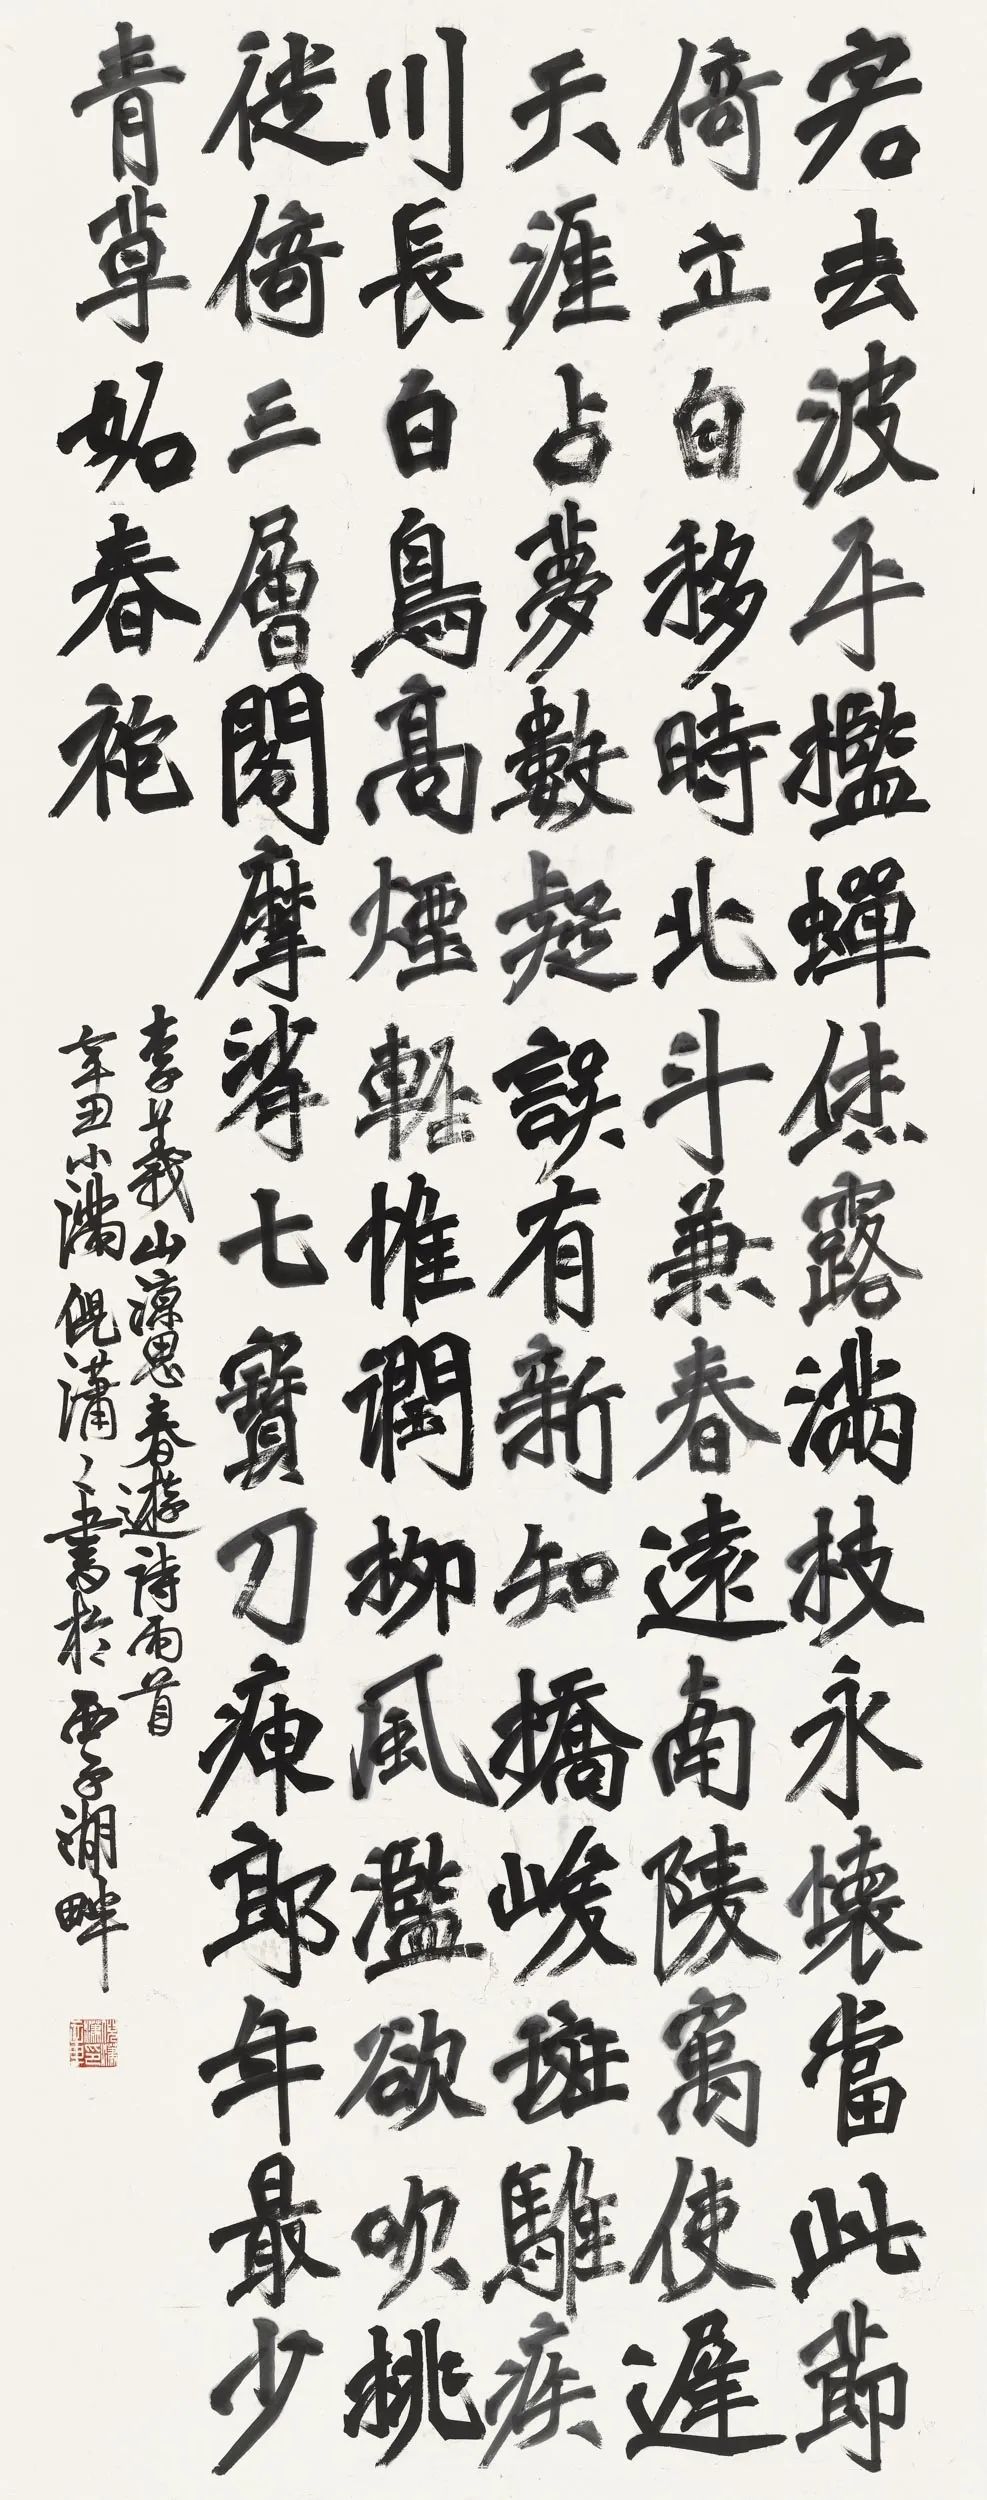 客去波平檻蟬烋露滿枝永懷當此節
倚立自移時北斗兼春遠南陵寓使遲
天涯占夢數疑誤有新知橋峻斑騅疾
川長白鳥高煙輕惟潤柳風濫欲吹桃
徙倚三層閣摩挲七寶刀庾郎年最少
青草妬春袍
李義山涼思春遊詩兩首
辛丑小滿倪瀟〻書於西子湖畔